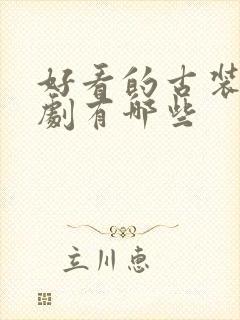 好看的古装
劇有哪些
立川恵